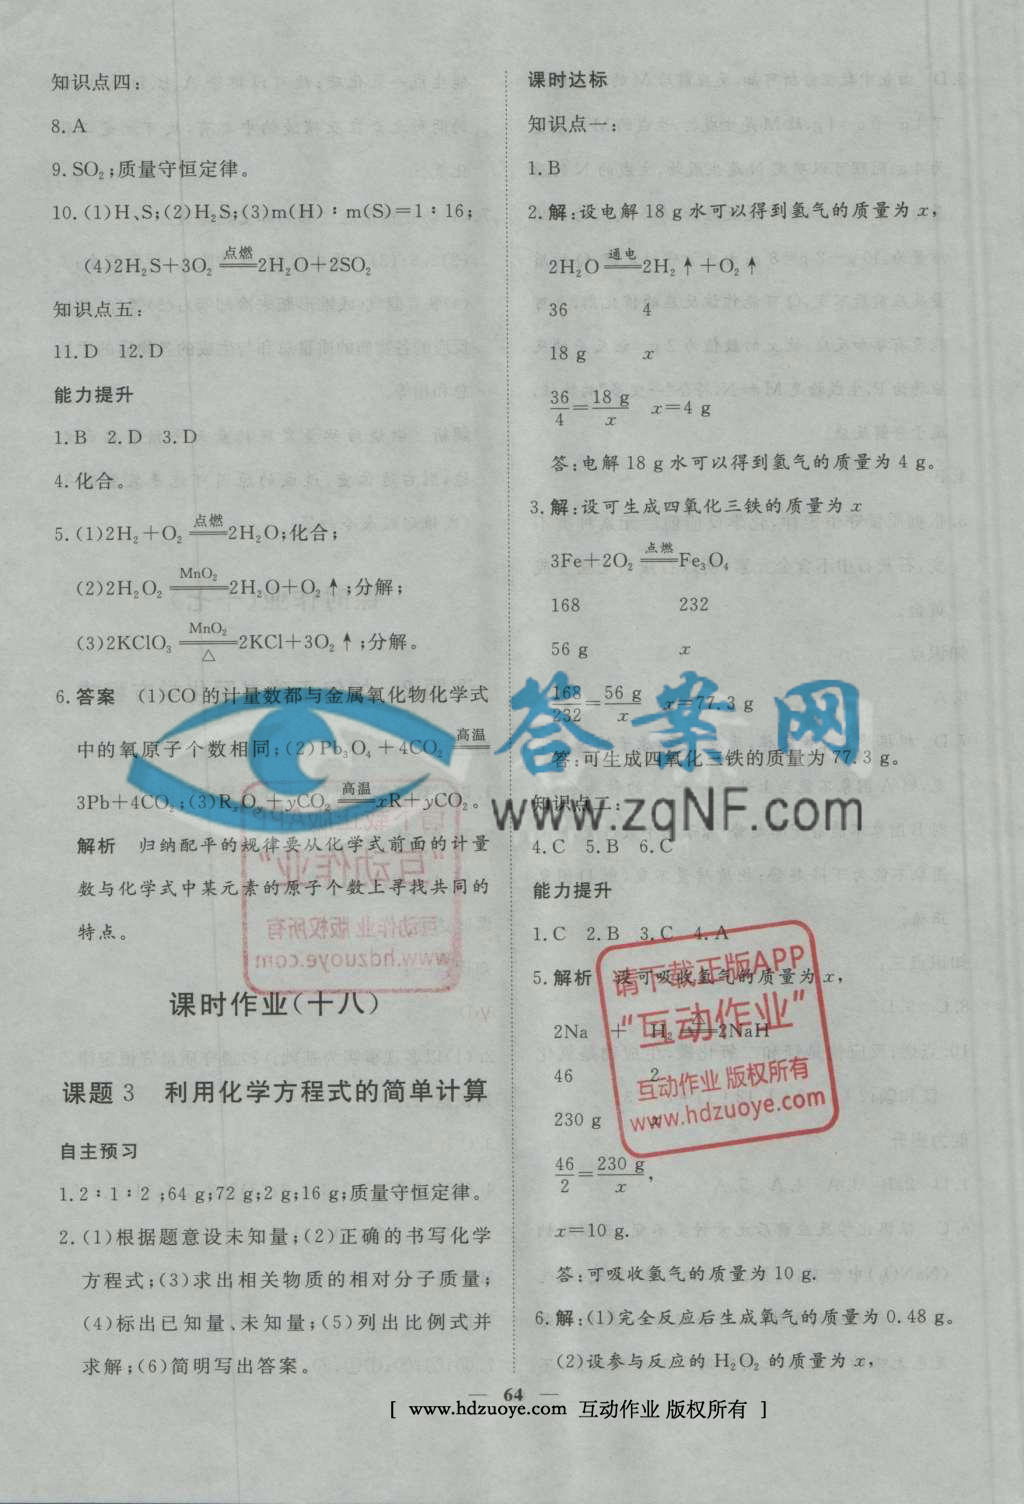 知识点四:
8. A
9. SO₂;质量守恒定律。
10. (1)H、S;(2)H₂S;(3)m(H)∶m(S)=1∶16;
(4)2H₂S+3O₂ 点燃 2H₂O+2SO₂
知识点五:
11. D 12. D
能力提升
1. B 2. D 3. D
4. 化合。
5. (1)2H₂+O₂ 点燃 2H₂O;化合;
(2)2H₂O₂ MnO₂ 2H₂O+O₂↑;分解;
(3)2KClO₃ MnO₂ △ 2KCl+3O₂↑;分解。
6. 答案 (1)CO的计量数都与金属氧化物化学式
中的氧原子个数相同;(2)Pb₃O₄+4CO₂ 高温
3Pb+4CO₂;(3)RₓOᵧ+yCO₂ 高温 xR+yCO₂。
解析 归纳配平的规律要从化学式前面的计量
数与化学式中某元素的原子个数上寻找共同的
特点。
课时作业(十八)
课题3 利用化学方程式的简单计算
自主预习
1. 2∶1∶2;64 g;72 g;2 g;16 g;质量守恒定律。
2. (1)根据题意设未知量;(2)正确的书写化学
方程式;(3)求出相关物质的相对分子质量;
(4)标出已知量、未知量;(5)列出比例式并
求解;(6)简明写出答案。
课时达标
知识点一:
1. B
2. 解:设电解18 g水可以得到氢气的质量为x,
2H₂O 通电 2H₂↑+O₂↑
36 4
18 g x
36/4=18 g/x x=4 g
答:电解18 g水可以得到氢气的质量为4 g。
3. 解:设可生成四氧化三铁的质量为x
3Fe+2O₂ 点燃 Fe₃O₄
168 232
56 g x
168/232=56 g/x x=77.3 g
答:可生成四氧化三铁的质量为77.3 g。
知识点二:
4. C 5. B 6. C
能力提升
1. C 2. B 3. C 4. A
5. 解析 设可吸收氢气的质量为x,
2Na + H₂ △ 2NaH
46 2
230 g x
46/2=230 g/x,
x=10 g.
答:可吸收氢气的质量为10 g.
6. 解:(1)完全反应后生成氧气的质量为0.48 g。
(2)设参与反应的H₂O₂的质量为x,
答案网
www.zqNF.com
请下载正版APP
“互动作业”
互动作业 版权所有
www.hdzuoye.com
64
[ www.hdzuoye.com 互动作业 版权所有 ]